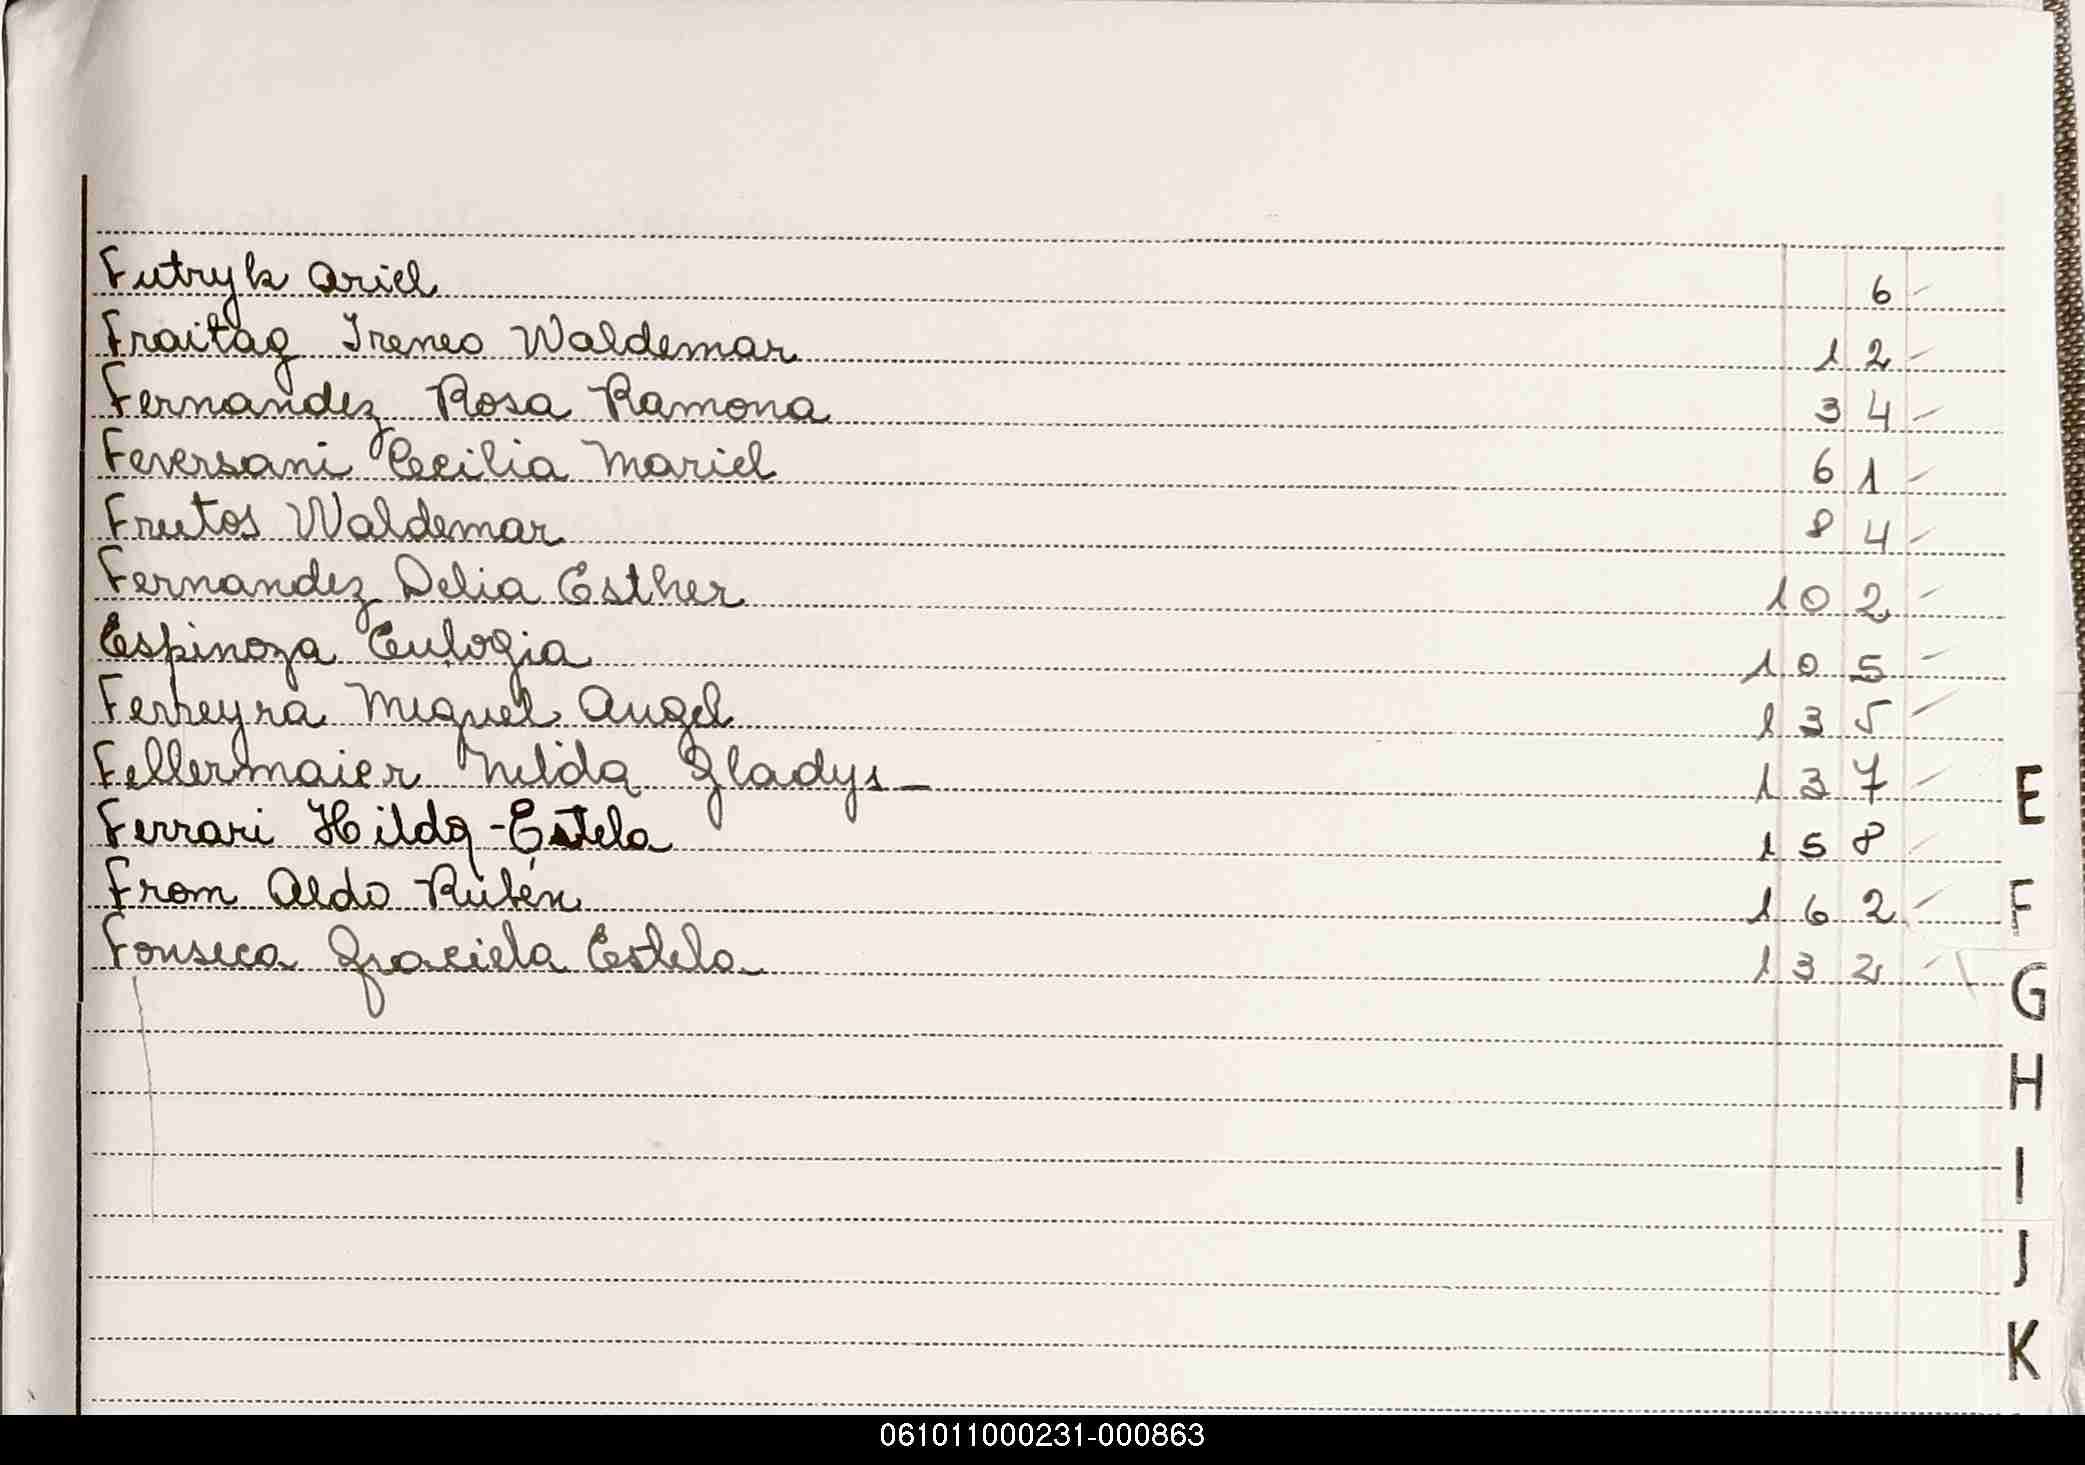 Futryk Ariel 6
Fraitag Ireneo Waldemar 12
Fernandez Rosa Ramona 34
Feversani Cecilia Mariel 61
Frutos Waldemar 84
Fernandez Delia Esther 102
Espinoza Eulogia 105
Ferreyra Miguel Angel 135
Fellermaier Nelida Gladys 137
Ferrari Hilda - Estela 158
From Aldo Rubén 162
Fonseca Graciela Estela 132
E
F
G
H
I
J
K
061011000231-000863